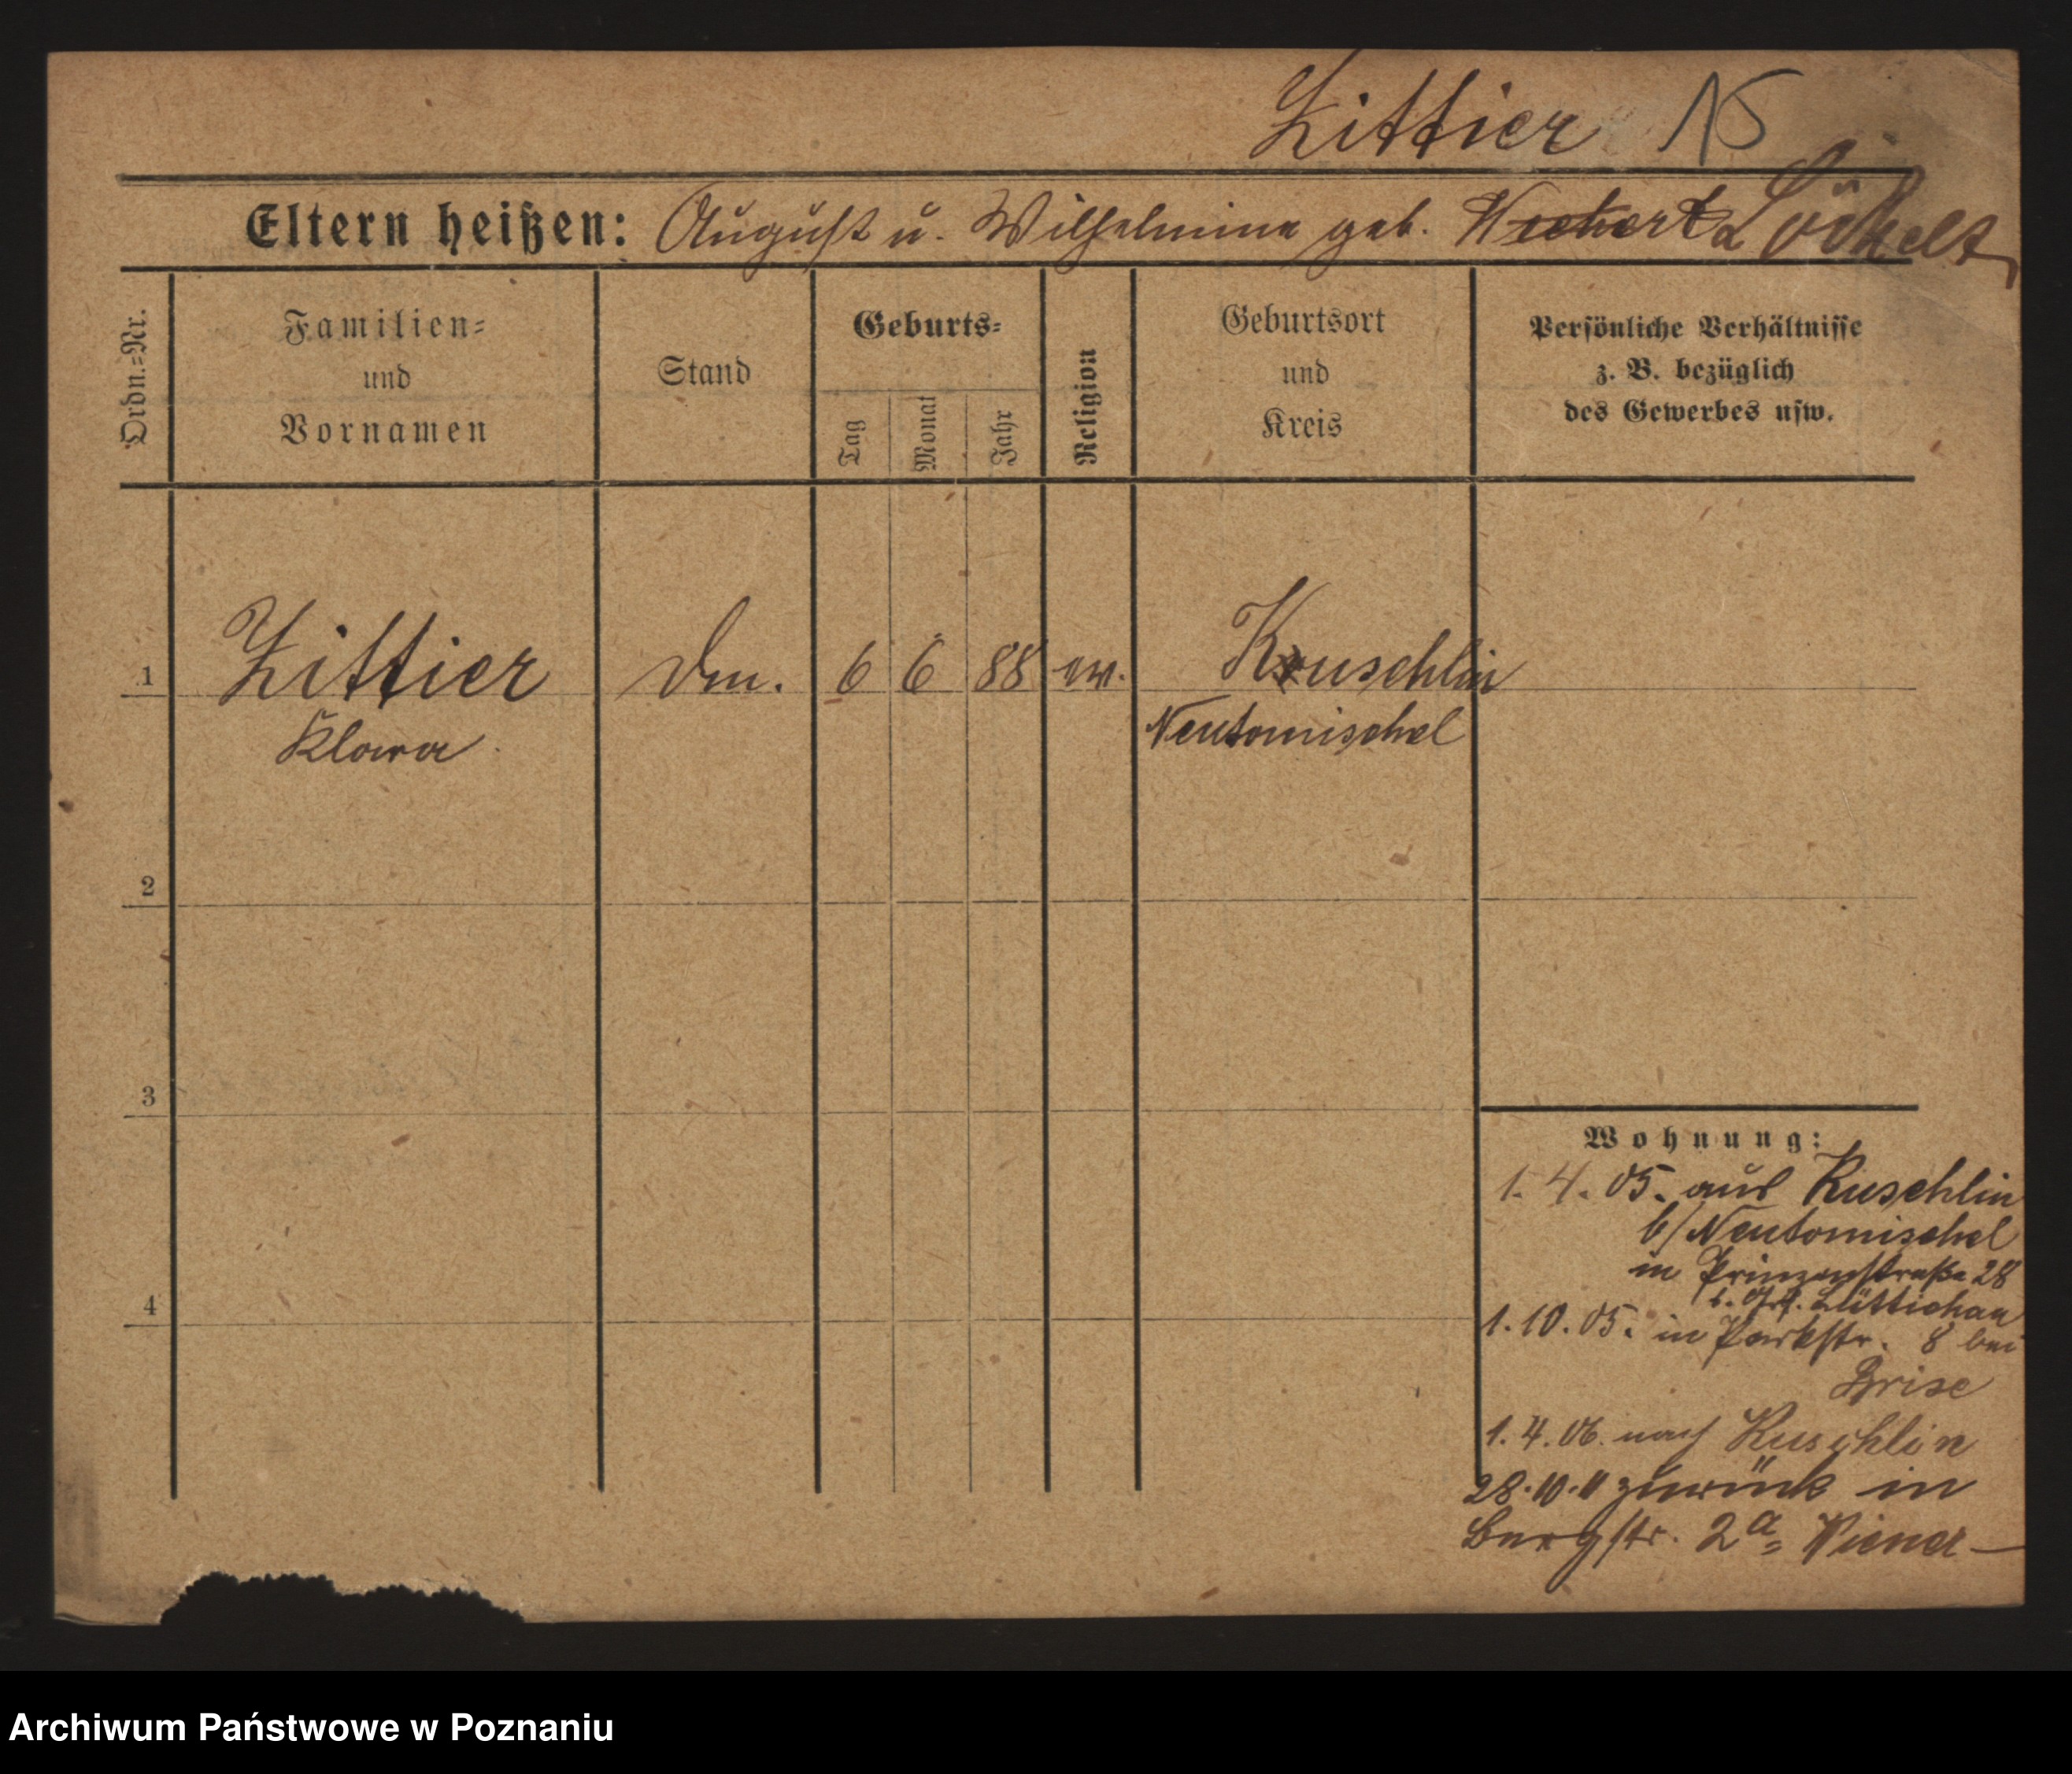 Zittier 15
Eltern heißen: August u. Wilhelmine geb. Wiehertz
Ordn.=Nr.
Familien=
und
Vornamen
Stand
Geburts=
Tag
Monat
Jahr
Religion
Geburtsort
und
Kreis
Persönliche Verhältnisse
z. B. bezüglich
des Gewerbes usw.
1 Zittier Dm. 6 6 88 ev. Kuschlin
Klara Neutomischel
2
3
4
Wohnung:
1. 4. 05. aus Kuschlin
b/Neutomischel
in Prinzenstraße 28
b. Lüttichau
1. 10. 05. in Parkstr. 8 bei
Brise
1. 4. 06. nach Kuschlin
28. 10. 11 zurück in
Burgstr. 2a, Wiener
Archiwum Państwowe w Poznaniu